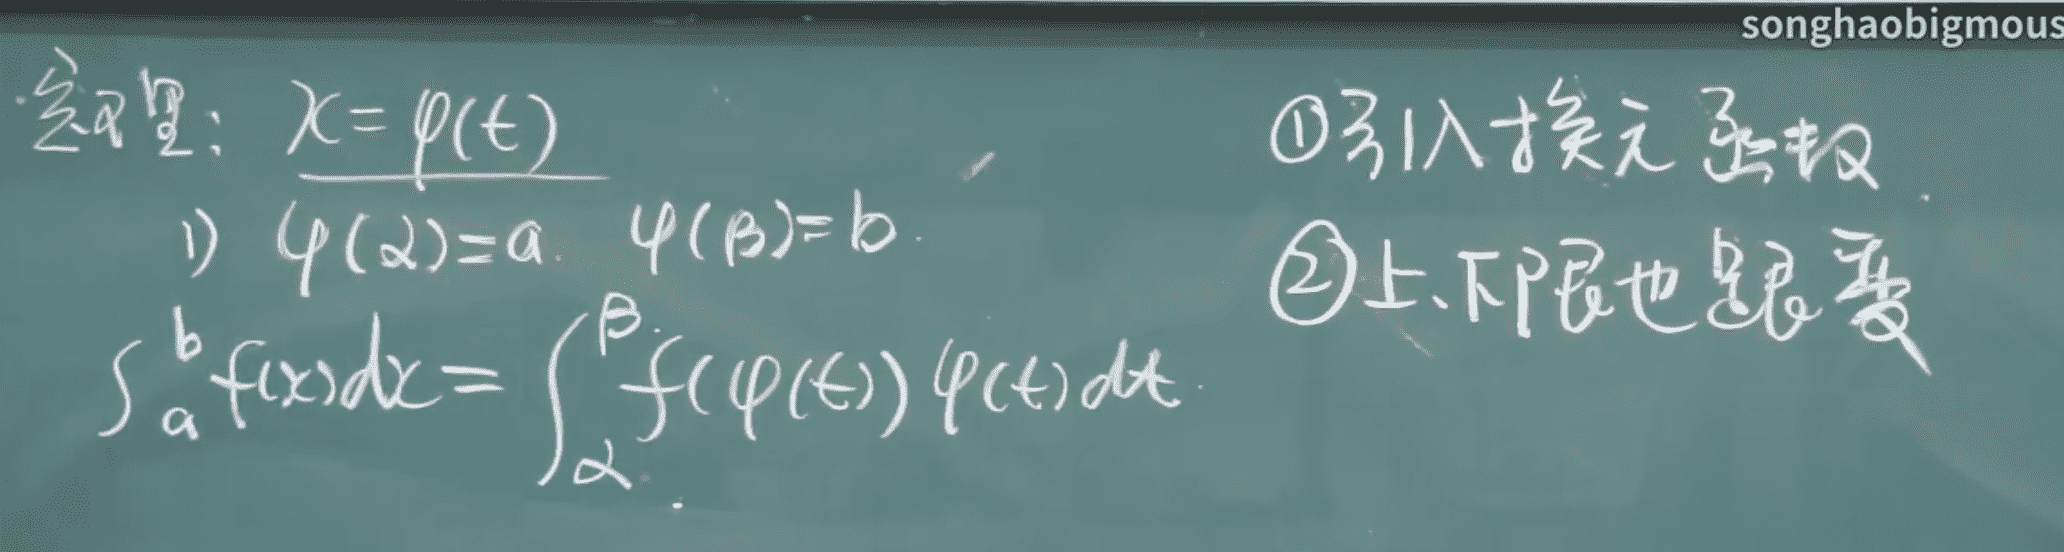 songhaobigmous
定理: x=φ(t)
1) φ(α)=a. φ(β)=b.
∫_a^b f(x)dx = ∫_α^β f(φ(t))φ(t)dt.
①引入换元函数.
②上、下限也跟变